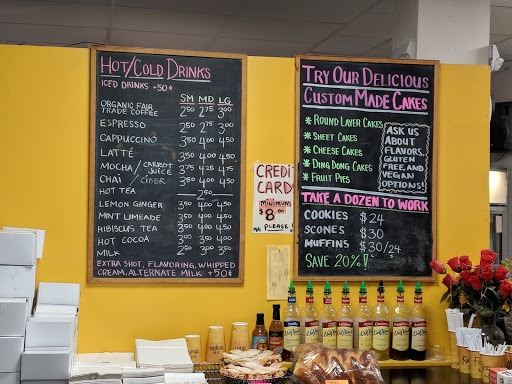 HOT/COLD DRINKS
ICED DRINKS +50¢
SM MD LG
ORGANIC FAIR
TRADE COFFEE 2⁵⁰ 2⁷⁵ 3⁰⁰
ESPRESSO 2⁵⁰ 2⁷⁵ 3⁰⁰
CAPPUCCINO 3⁵⁰ 4⁰⁰ 4⁵⁰
LATTÉ 3⁵⁰ 4⁰⁰ 4⁵⁰
MOCHA / CARROT JUICE 3⁷⁵ 4²⁵ 4⁷⁵
CHAI / CIDER 3⁵⁰ 4⁰⁰ 4⁵⁰
HOT TEA 2⁵⁰
LEMON GINGER 3⁵⁰ 4⁰⁰ 4⁵⁰
MINT LIMEADE 3⁵⁰ 4⁰⁰ 4⁵⁰
HIBISCUS TEA 3⁵⁰ 4⁰⁰ 4⁵⁰
HOT COCOA
MILK
EXTRA SHOT, FLAVORING, WHIPPED
CREAM, ALTERNATE MILK +50¢
CREDIT
CARD
MINIMUM
$8.00
PLEASE
TRY OUR DELICIOUS
CUSTOM MADE CAKES
* ROUND LAYER CAKES
* SHEET CAKES
* CHEESE CAKES
* DING DONG CAKES
* FRUIT PIES
ASK US
ABOUT
FLAVORS,
GLUTEN
FREE, AND
VEGAN
OPTIONS!
TAKE A DOZEN TO WORK
COOKIES $24
SCONES $30
MUFFINS $30/24
SAVE 20%!